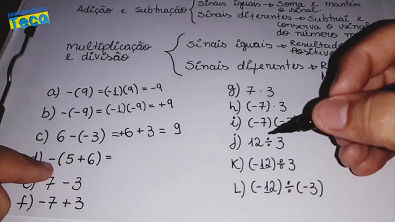 Teco
Adição e subtração
Sinais iguais → Soma e mantém
o sinal.
Sinais diferentes → Subtrai e
conserva o
do número
multiplicação
e divisão
Sinais iguais → Resultado
Positivo
Sinais diferentes →
a) -(9) = (-1)(9) = -9
b) -(-9) = (-1)(-9) = +9
c) 6 - (-3) = +6 + 3 = 9
-(5+6) =
7 - 3
f) -7 + 3
g) 7 · 3
h) (-7) · 3
i) (-7)
j) 12 ÷ 3
K) (-12) ÷ 3
L) (-12) ÷ (-3)